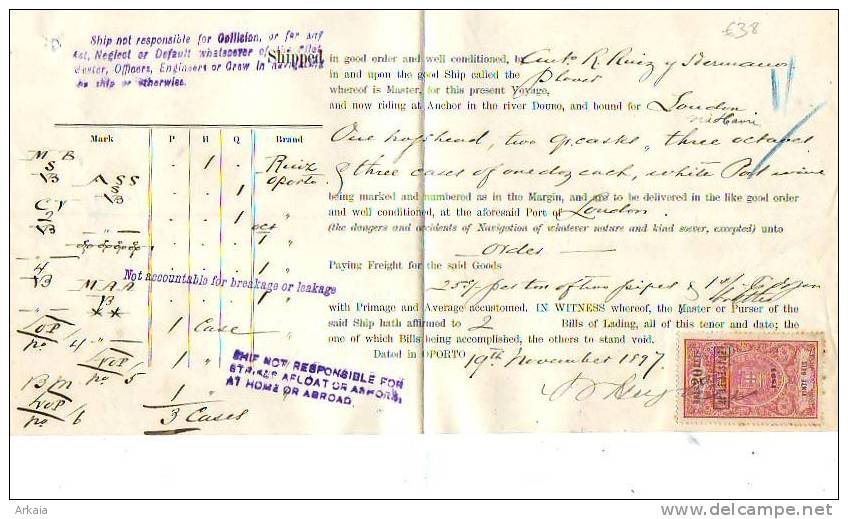 £38
Ship not responsible for Collision, or for any
Act, Neglect or Default whatsoever of the Pilot
Master, Officers, Engineers or Crew in navigating
the ship or otherwise.
Shipped in good order and well conditioned, by Anto R. Ruiz y Hermanos
in and upon the good Ship called the Plover
whereof is Master, for this present Voyage,
and now riding at Anchor in the river DOURO, and bound for London
via Havre
One hogshead, two qr. casks, three octaves
& three cases of one doz each, white Port wine
being marked and numbered as in the Margin, and are to be delivered in the like good order
and well conditioned, at the aforesaid Port of London.
(the dangers and accidents of Navigation of whatever nature and kind soever, excepted) unto
order
Paying Freight for the said Goods
25/ per ton of two pipes & 1
with Primage and Average accustomed. IN WITNESS whereof, the Master or Purser of the
said Ship hath affirmed to 2 Bills of Lading, all of this tenor and date; the
one of which Bills being accomplished, the others to stand void.
Dated in OPORTO 19th November 1897.
Mark P H Q Brand
M B 1 Ruiz
S Oporto
VB
A S S 1
S
VB
C V 1 "
2
VB oct
1 "
4 1 "
VB M A A 1 "
VB
Not accountable for breakage or leakage
VOP 1 Case
no/4
VOP 1 "
no/5
B M 1 "
VOP 3 Cases
no/6
SHIP NOT RESPONSIBLE FOR
STRIKES AFLOAT OR ASHORE,
AT HOME OR ABROAD.
20
Arkaia
www.delcampe.net